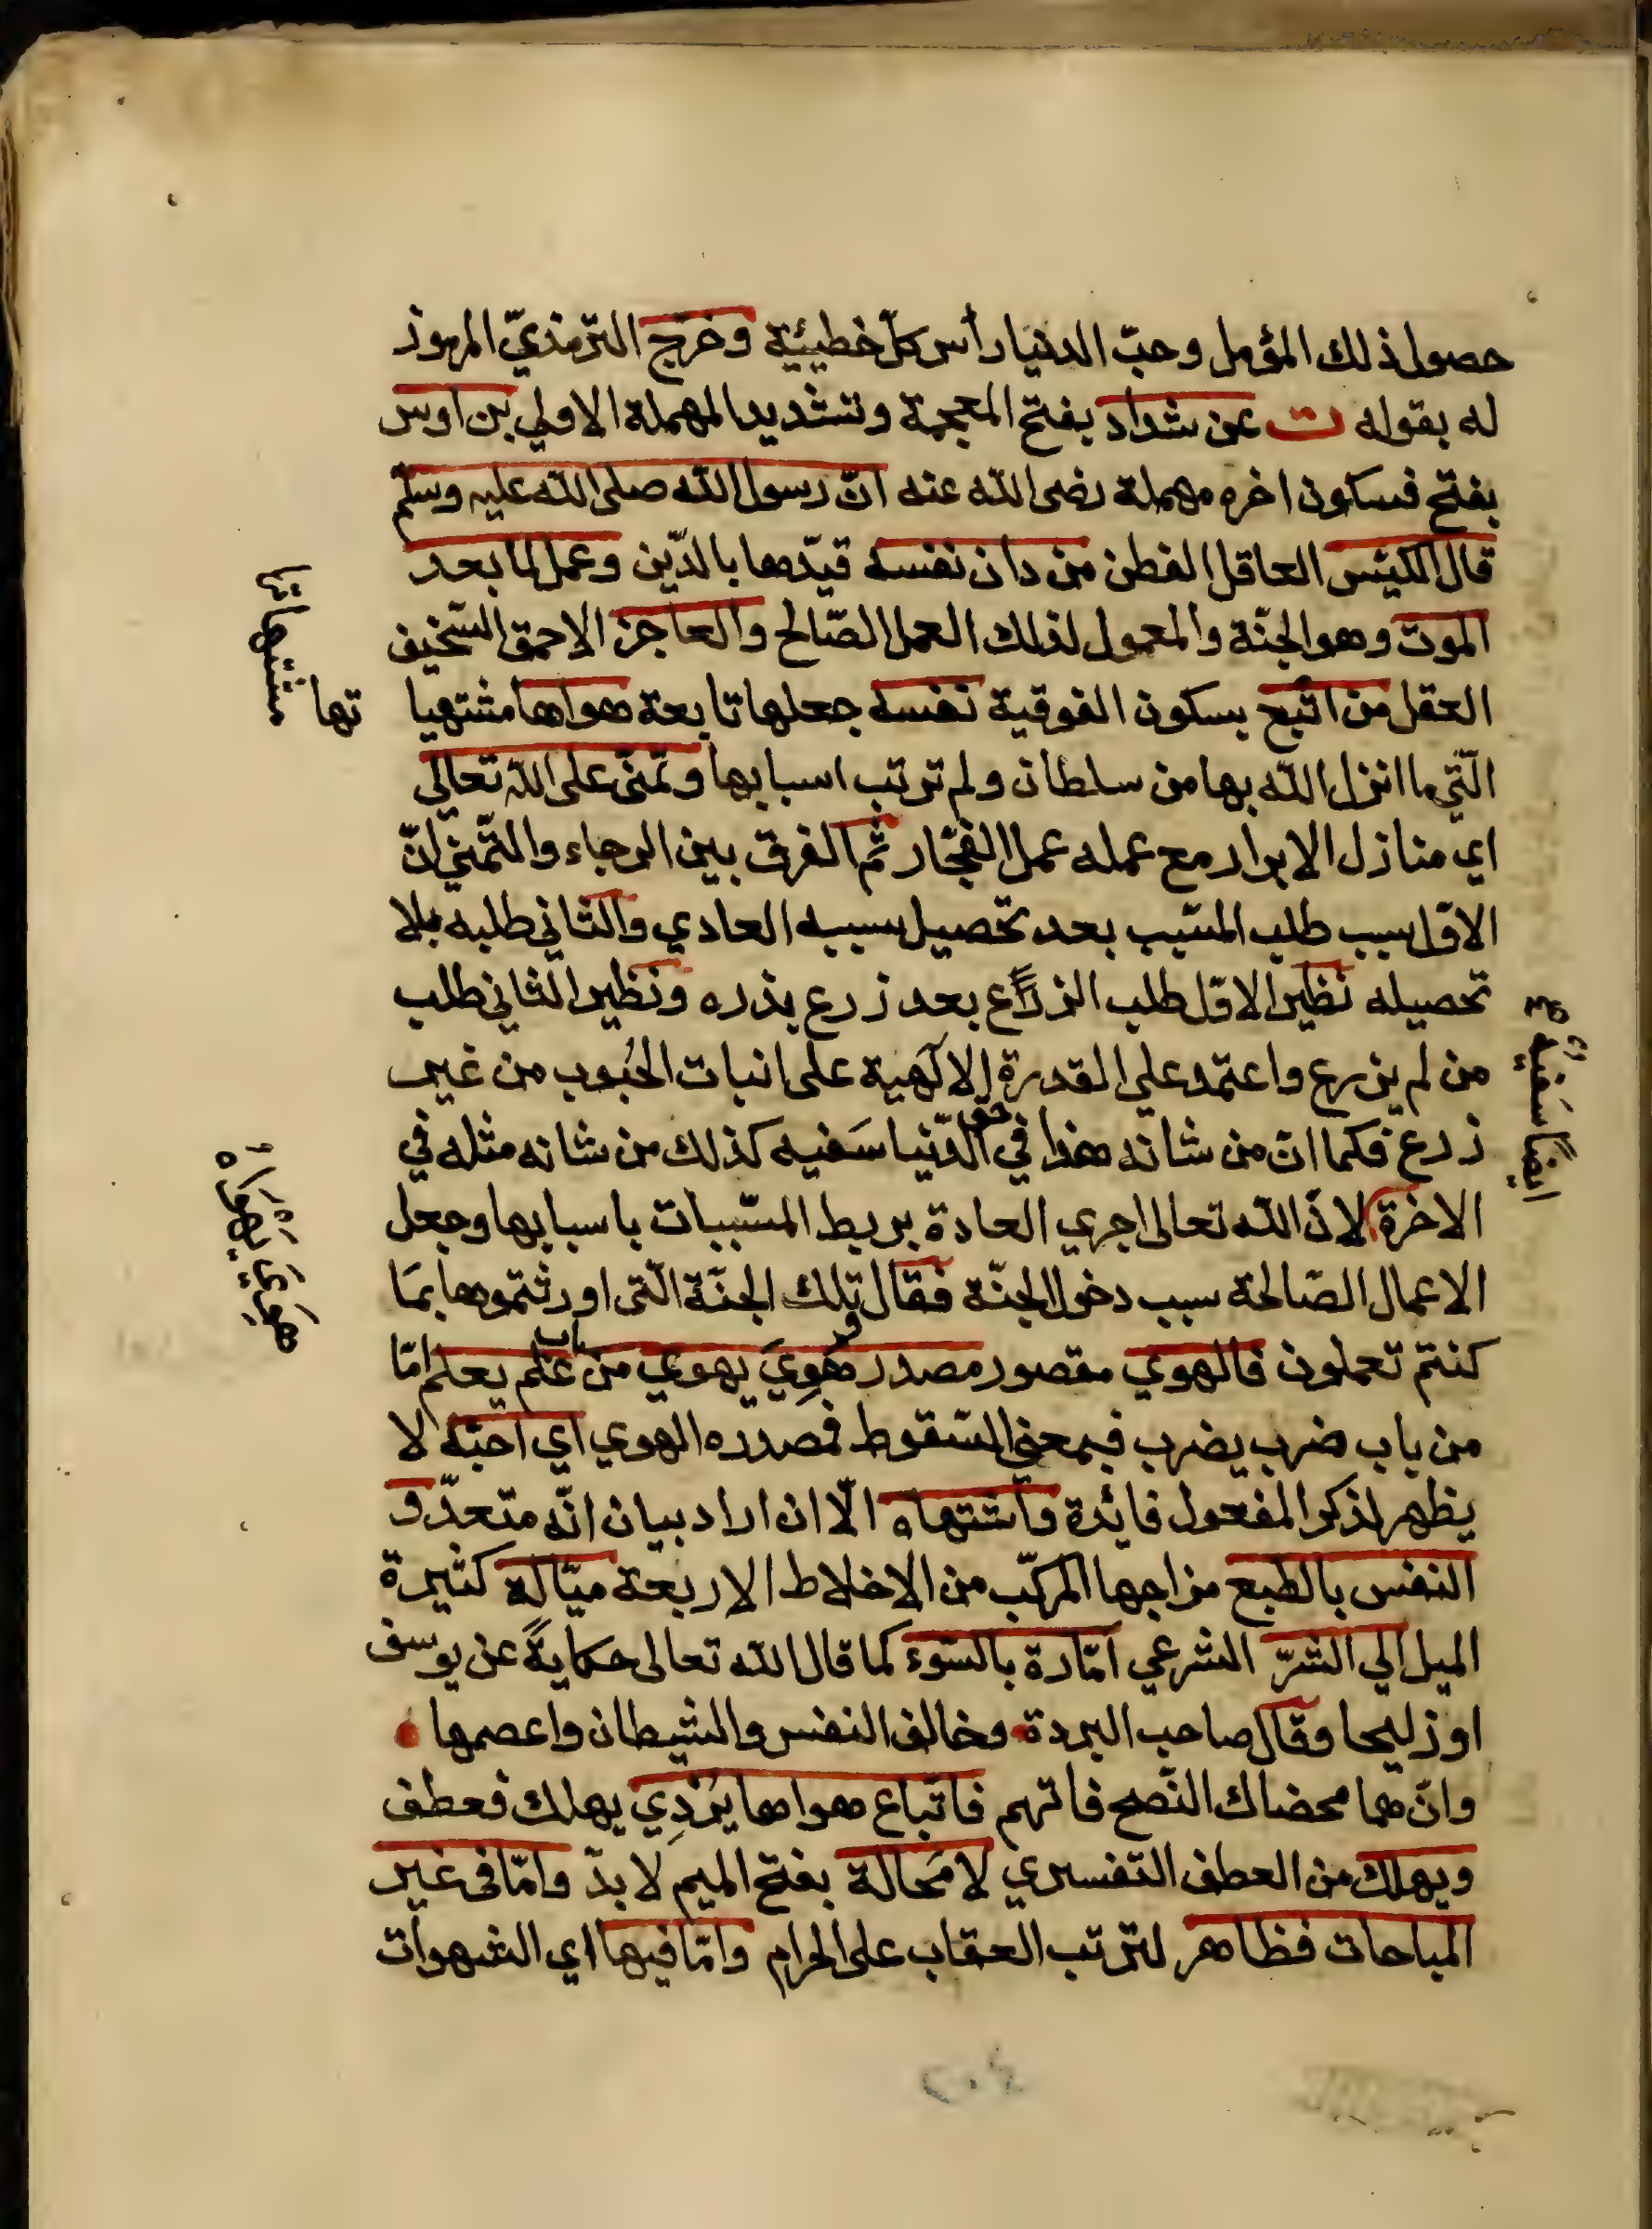 حصول ذلك المؤمل وحبّ الدنيا رأس كلّ خطيئة وخرّج الترمذيّ المرموز
له بقوله ت عن شداد بفتح المعجمة وتشديد المهملة الاولي بن اوس
بفتح فسكون اخره مهملة رضى الله عنه انّ رسول الله صلى الله عليه وسلّم
قال الكيّس العاقل الفطن من دان نفسه قيّدها بالدّين وعمل لما بعد
الموت وهو الجنّة والمعمول لذلك العمل الصّالح والعاجز الاحمق السّخيف
العقل من اتبع بسكون الفوقية نفسه جعلها تابعة هواها مشتهيا تها
مشتهياتها
الّتي ما انزل الله بها من سلطان ولم ترتب اسبابها وتمنّى على الله تعالى
اي منازل الابرار مع عمله عمل الفجّار ثم الفرق بين الرجاء والتّمني انّ
الاوّل سبب طلب المسّبب بعد تحصيل سببه العادي والثاني طلبه بلا
تحصيله نظير الاوّل طلب الزراع بعد زرع بذره ونظير الثاني طلب
من لم يزرع واعتمد علي القدرة الآلهية على انبات الحُبوب من غير
زرع فكما انّ من شانه هذا في حق الدّنيا سَفيه كذلك من شانه مثله في
ايضاً سَفيهٌ
الاخرة لانّ الله تعالى اجري العادة بربط المسّببات باسبابها وجعل
الاعمال الصّالحة سبب دخول الجنّة فقال تلك الجنّة الّتى اورثتموها بمَا
كنتم تعملون فالهوي مقصور مصدر هَوِيَ يهوي من باب علم يعلم امّا
هَوِيَ يهواه
من باب ضرب يضرب فبمعني السّقوط فمصدره الهوي اي احبّه لا
يظهر لذكر المفعول فائدة واشتهاه الّا ان اراد بيان انّه متعدّ و
النفس بالطبع مزاجها المركّب من الاخلاط الاربعة ميّالة كثيرة
الميل الي الشرّ الشرعي امّارة بالسّوء كما قال الله تعالى حكايةً عن يوسف
او زليحا وقال صاحب البردة وخالف النفس والشيطان واعصمها
وانّ هما محضاك النّصح فاتهم فاتّباع هواها يُرْدِي يهلك فعطف
ويهلك من العطف التفسيري لا مَحالة بفتح الميم لا بدّ وامّا فى غير
المباحات فظاهر لترتب العقاب على الحرام وامّا فيها اي الشهوات